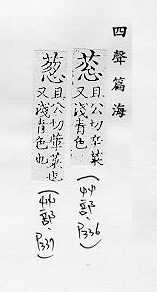 四聲篇海
且公切葷菜
又淺青色
(艸部、P336)
葱
且公切葷菜也
又淺青色也
(艸部、P337)